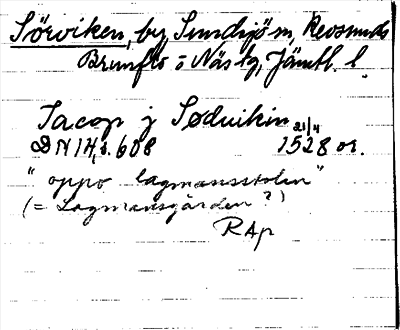 Sörviken, by, Sundsjö sn, Revsunds
Brunflo o Näs tg, Jämtl. l.
Jacop j Søduikin 21/4
DN 14, s. 608 1528 or.
"oppo lagmansstolen"
(= Lagmansgården?)
RAp